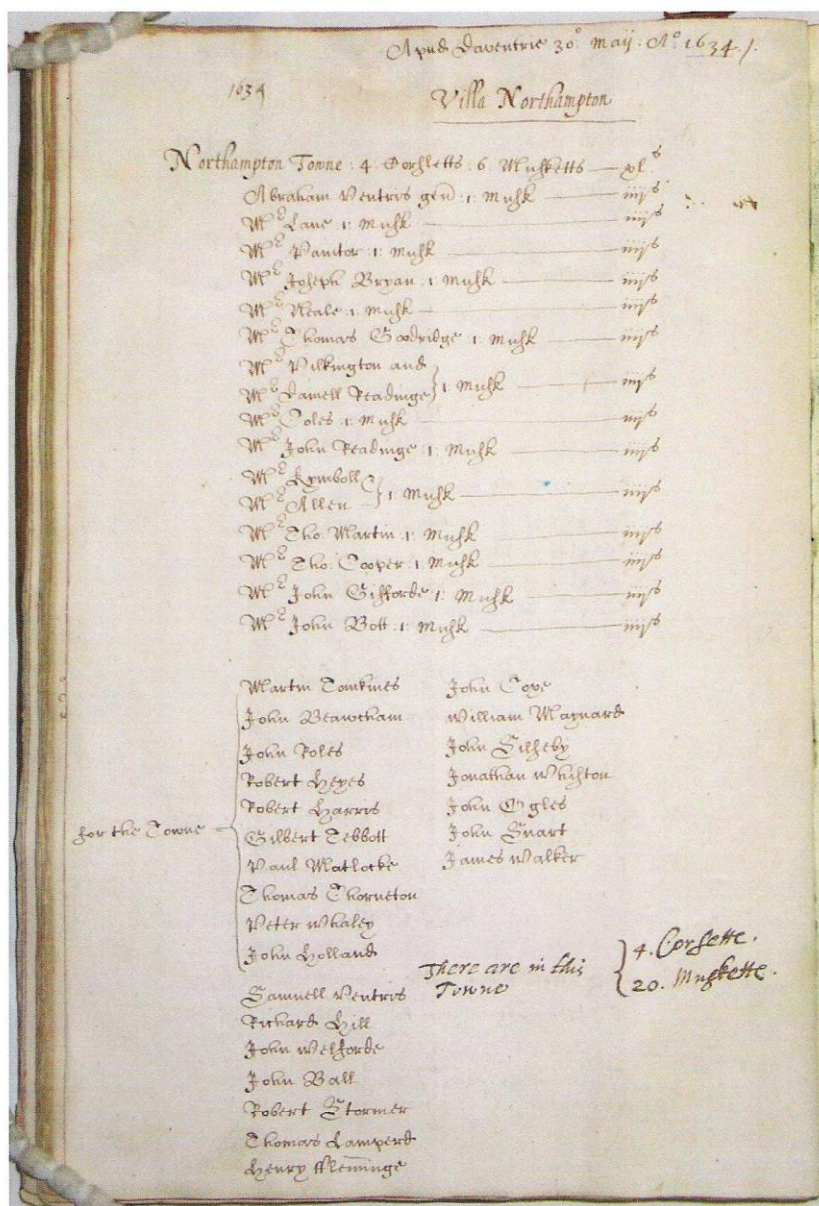 Apud Daventrie 30º Maij: Aº 1634 /.
1634
Villa Northampton
Northampton Towne : 4 Corsletts : 6 Musketts — xl s
Abraham Ventris gen : 1 : Musk — iiij s
Mr Lane 1 : Musk — iiij s
Mr Vantor : 1 : Musk — iiij s
Mr Joseph Bryan : 1 : Musk — iiij s
Mr Neale : 1 : Musk — iiij s
Mr Thomas Goodridge 1 : Musk — iiij s
Mr Pilkington and
Mr Daniell Readinge } 1 : Musk — iiij s
Mr Coles : 1 : Musk — iiij s
Mr John Readinge : 1 : Musk — iiij s
Mr Kymboll
Mr Allen } 1 Musk — iiij s
Mr Tho: Martin : 1 : Musk — iiij s
Mr Tho: Cooper : 1 : Musk — iiij s
Mr John Gifforde : 1 : Musk — iiij s
Mr John Bott : 1 : Musk — iiij s
for the Towne
Martin Tomkines
John Beawcham
John Roles
Robert Heyes
Robert Harris
Gilbert Tebbott
Paul Matlocke
Thomas Thorneton
Peter Whaley
John Holland
Samuell Ventris
Richard Hill
John Welforde
John Ball
Robert Stormer
Thomas Lamperd
Henry fflem̄inge
John Cope
William Maynard
John Silsbby
Jonathan Whiston
John Eagles
John Snart
James Walker
There are in this
Towne
4. Corsette.
20. Muskette.